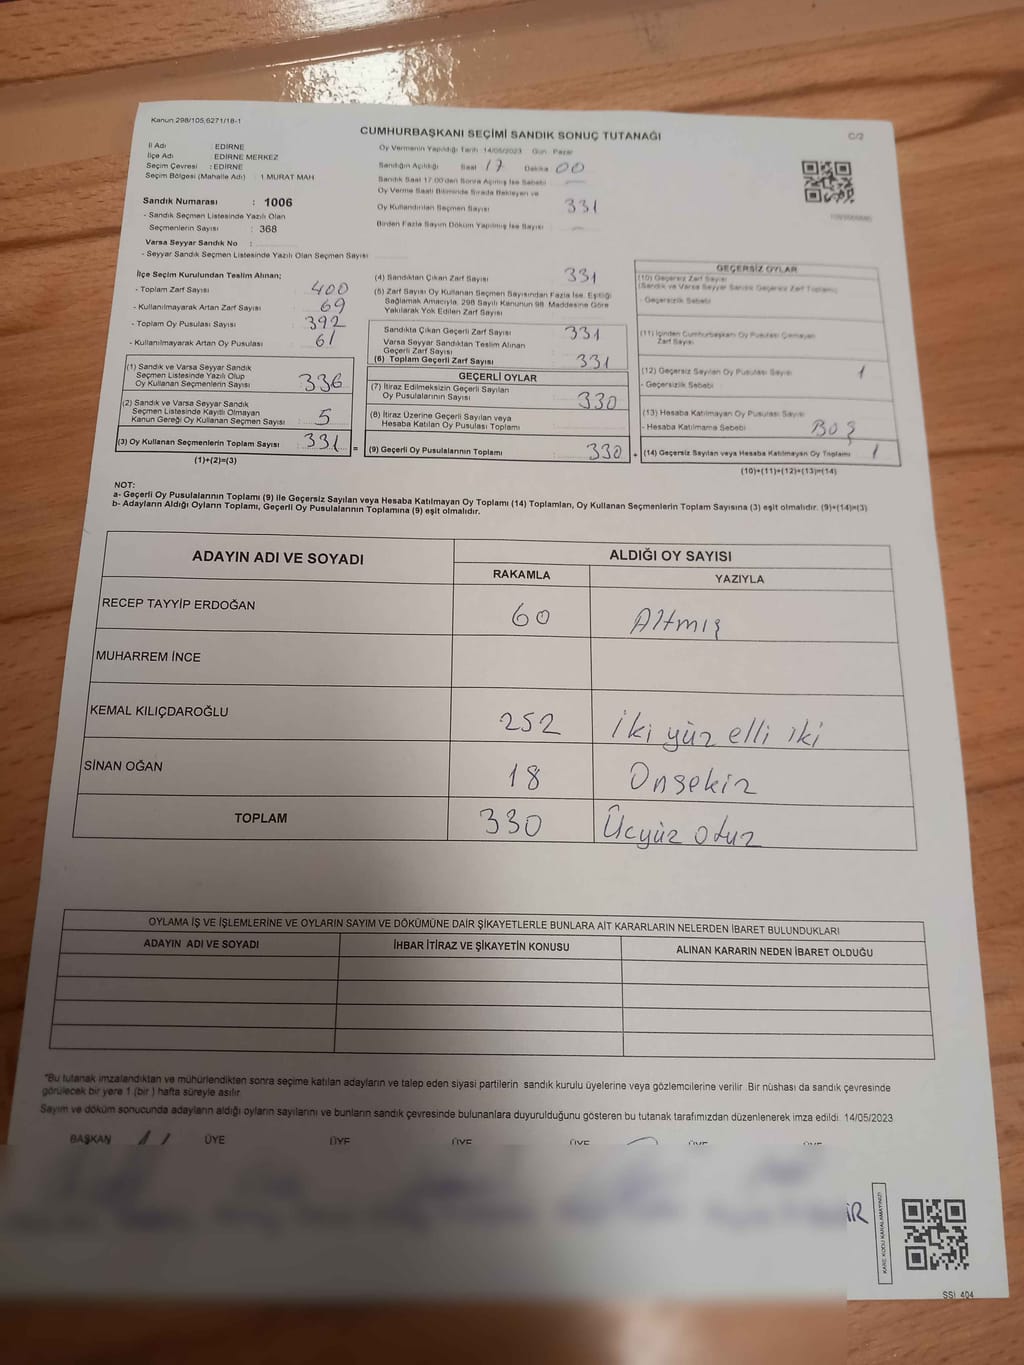 Kanun 298/105,6271/18-1
CUMHURBAŞKANI SEÇİMİ SANDIK SONUÇ TUTANAĞI
C/2
İl Adı : EDİRNE
İlçe Adı : EDİRNE MERKEZ
Seçim Çevresi : EDİRNE
Seçim Bölgesi (Mahalle Adı) : 1.MURAT MAH
Sandık Numarası : 1006
- Sandık Seçmen Listesinde Yazılı Olan
Seçmenlerin Sayısı : 368
Varsa Seyyar Sandık No :
- Seyyar Sandık Seçmen Listesinde Yazılı Olan Seçmen Sayısı
Oy Vermenin Yapıldığı Tarih 14/05/2023 Gün Pazar
Sandığın Açıldığı Saat 17 Dakika 00
Sandık Saat 17.00'den Sonra Açılmış İse Sebebi
Oy Verme Saati Bitiminde Sırada Bekleyen ve
Oy Kullandırılan Seçmen Sayısı 331
Birden Fazla Sayım Döküm Yapılmış İse Sayısı
İlçe Seçim Kurulundan Teslim Alınan;
- Toplam Zarf Sayısı 400
- Kullanılmayarak Artan Zarf Sayısı 69
- Toplam Oy Pusulası Sayısı 392
- Kullanılmayarak Artan Oy Pusulası 61
(1) Sandık ve Varsa Seyyar Sandık
Seçmen Listesinde Yazılı Olup
Oy Kullanan Seçmenlerin Sayısı 336
(2) Sandık ve Varsa Seyyar Sandık
Seçmen Listesinde Kayıtlı Olmayan
Kanun Gereği Oy Kullanan Seçmen Sayısı 5
(3) Oy Kullanan Seçmenlerin Toplam Sayısı 331 =
(1)+(2)=(3)
(4) Sandıktan Çıkan Zarf Sayısı 331
(5) Zarf Sayısı Oy Kullanan Seçmen Sayısından Fazla İse, Eşitliği
Sağlamak Amacıyla, 298 Sayılı Kanunun 98. Maddesine Göre
Yakılarak Yok Edilen Zarf Sayısı
Sandıkta Çıkan Geçerli Zarf Sayısı 331
Varsa Seyyar Sandıktan Teslim Alınan
Geçerli Zarf Sayısı
(6) Toplam Geçerli Zarf Sayısı 331
GEÇERLİ OYLAR
(7) İtiraz Edilmeksizin Geçerli Sayılan
Oy Pusulalarının Sayısı 330
(8) İtiraz Üzerine Geçerli Sayılan veya
Hesaba Katılan Oy Pusulası Toplamı
(9) Geçerli Oy Pusulalarının Toplamı 330 +
GEÇERSİZ OYLAR
(10) Geçersiz Zarf Sayısı
(Sandık ve Varsa Seyyar Sandık Geçersiz Zarf Toplamı)
- Geçersizlik Sebebi
(11) İçinden Cumhurbaşkanı Oy Pusulası Çıkmayan
Zarf Sayısı
(12) Geçersiz Sayılan Oy Pusulası Sayısı 1
- Geçersizlik Sebebi
(13) Hesaba Katılmayan Oy Pusulası Sayısı
- Hesaba Katılmama Sebebi BOŞ
(14) Geçersiz Sayılan veya Hesaba Katılmayan Oy Toplamı 1
(10)+(11)+(12)+(13)=(14)
NOT:
a- Geçerli Oy Pusulalarının Toplamı (9) ile Geçersiz Sayılan veya Hesaba Katılmayan Oy Toplamı (14) Toplamları, Oy Kullanan Seçmenlerin Toplam Sayısına (3) eşit olmalıdır. (9)+(14)=(3)
b- Adayların Aldığı Oyların Toplamı, Geçerli Oy Pusulalarının Toplamına (9) eşit olmalıdır.
ADAYIN ADI VE SOYADI
ALDIĞI OY SAYISI
RAKAMLA YAZIYLA
RECEP TAYYİP ERDOĞAN 60 Altmış
MUHARREM İNCE
KEMAL KILIÇDAROĞLU 252 İki yüz elli iki
SİNAN OĞAN 18 Onsekiz
TOPLAM 330 Üçyüz otuz
OYLAMA İŞ VE İŞLEMLERİNE VE OYLARIN SAYIM VE DÖKÜMÜNE DAİR ŞİKAYETLERLE BUNLARA AİT KARARLARIN NELERDEN İBARET BULUNDUKLARI
ADAYIN ADI VE SOYADI İHBAR İTİRAZ VE ŞİKAYETİN KONUSU ALINAN KARARIN NEDEN İBARET OLDUĞU
"Bu tutanak imzalandıktan ve mühürlendikten sonra seçime katılan adayların ve talep eden siyasi partilerin sandık kurulu üyelerine veya gözlemcilerine verilir .Bir nüshası da sandık çevresinde
görülecek bir yere 1 (bir ) hafta süreyle asılır.
Sayım ve döküm sonucunda adayların aldığı oyların sayılarını ve bunların sandık çevresinde bulunanlara duyurulduğunu gösteren bu tutanak tarafımızdan düzenlenerek imza edildi. 14/05/2023
BAŞKAN ÜYE ÜYE ÜYE ÜYE ÜYE ÜYE
İR
KARE KODU KARALAMAYINIZ!
SSİ_404